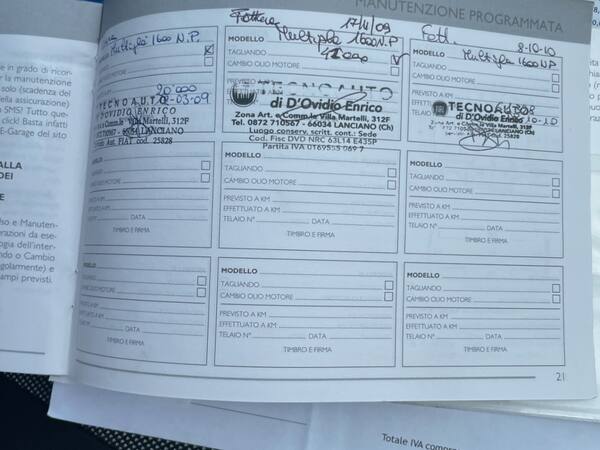 MANUTENZIONE PROGRAMMATA
e in grado di ricor-
r la manutenzione
solo (scadenza del
della assicurazione)
SMS! Tutto que-
click! Basta infatti
E-Garage del sito
ALLA
DEI
so e Manuten-
erazioni da ese-
ogia dell'inter-
ndo o Cambio
golamente) e
ampi previsti.
Multipla 1600 N.P.
20 000
-03-09
TECNOAUTO
D'OVIDIO ENRICO
Martelli, 312F
LANCIANO
Aut. FIAT cod. 25828
Fattura 17/11/09
MODELLO Multipla 1600 N.P
TAGLIANDO
CAMBIO OLIO MOTORE
PREVISTO
TECNOAUTO
di D'Ovidio Enrico
Zona Art. e Comm.le Villa Martelli, 312F
Tel. 0872 710567 - 66034 LANCIANO (Ch)
Luogo conserv. scritt. cont.: Sede
Cod. Fisc DVD NRC 63L14 E435P
Partita IVA 01695
Fatt. 8-10-10
MODELLO Multipla 1600 NP
TAGLIANDO
CAMBIO OLIO MOTORE
PREVISTO A KM
TECNOAUTO
di D'Ovidio Enrico
66034 LANCIANO (Ch)
25828
MODELLO
TAGLIANDO
CAMBIO OLIO MOTORE
PREVISTO A KM
EFFETTUATO A KM
TELAIO N° DATA
TIMBRO E FIRMA
MODELLO
TAGLIANDO
CAMBIO OLIO MOTORE
PREVISTO A KM
EFFETTUATO A KM
TELAIO N° DATA
TIMBRO E FIRMA
MODELLO
TAGLIANDO
CAMBIO OLIO MOTORE
PREVISTO A KM
EFFETTUATO A KM
TELAIO N° DATA
TIMBRO E FIRMA
MODELLO
TAGLIANDO
CAMBIO OLIO MOTORE
PREVISTO A KM
EFFETTUATO A KM
TELAIO N° DATA
TIMBRO E FIRMA
MODELLO
TAGLIANDO
CAMBIO OLIO MOTORE
PREVISTO A KM
EFFETTUATO A KM
TELAIO N° DATA
TIMBRO E FIRMA
MODELLO
TAGLIANDO
CAMBIO OLIO MOTORE
PREVISTO A KM
EFFETTUATO A KM
TELAIO N° DATA
TIMBRO E FIRMA
21
Totale IVA